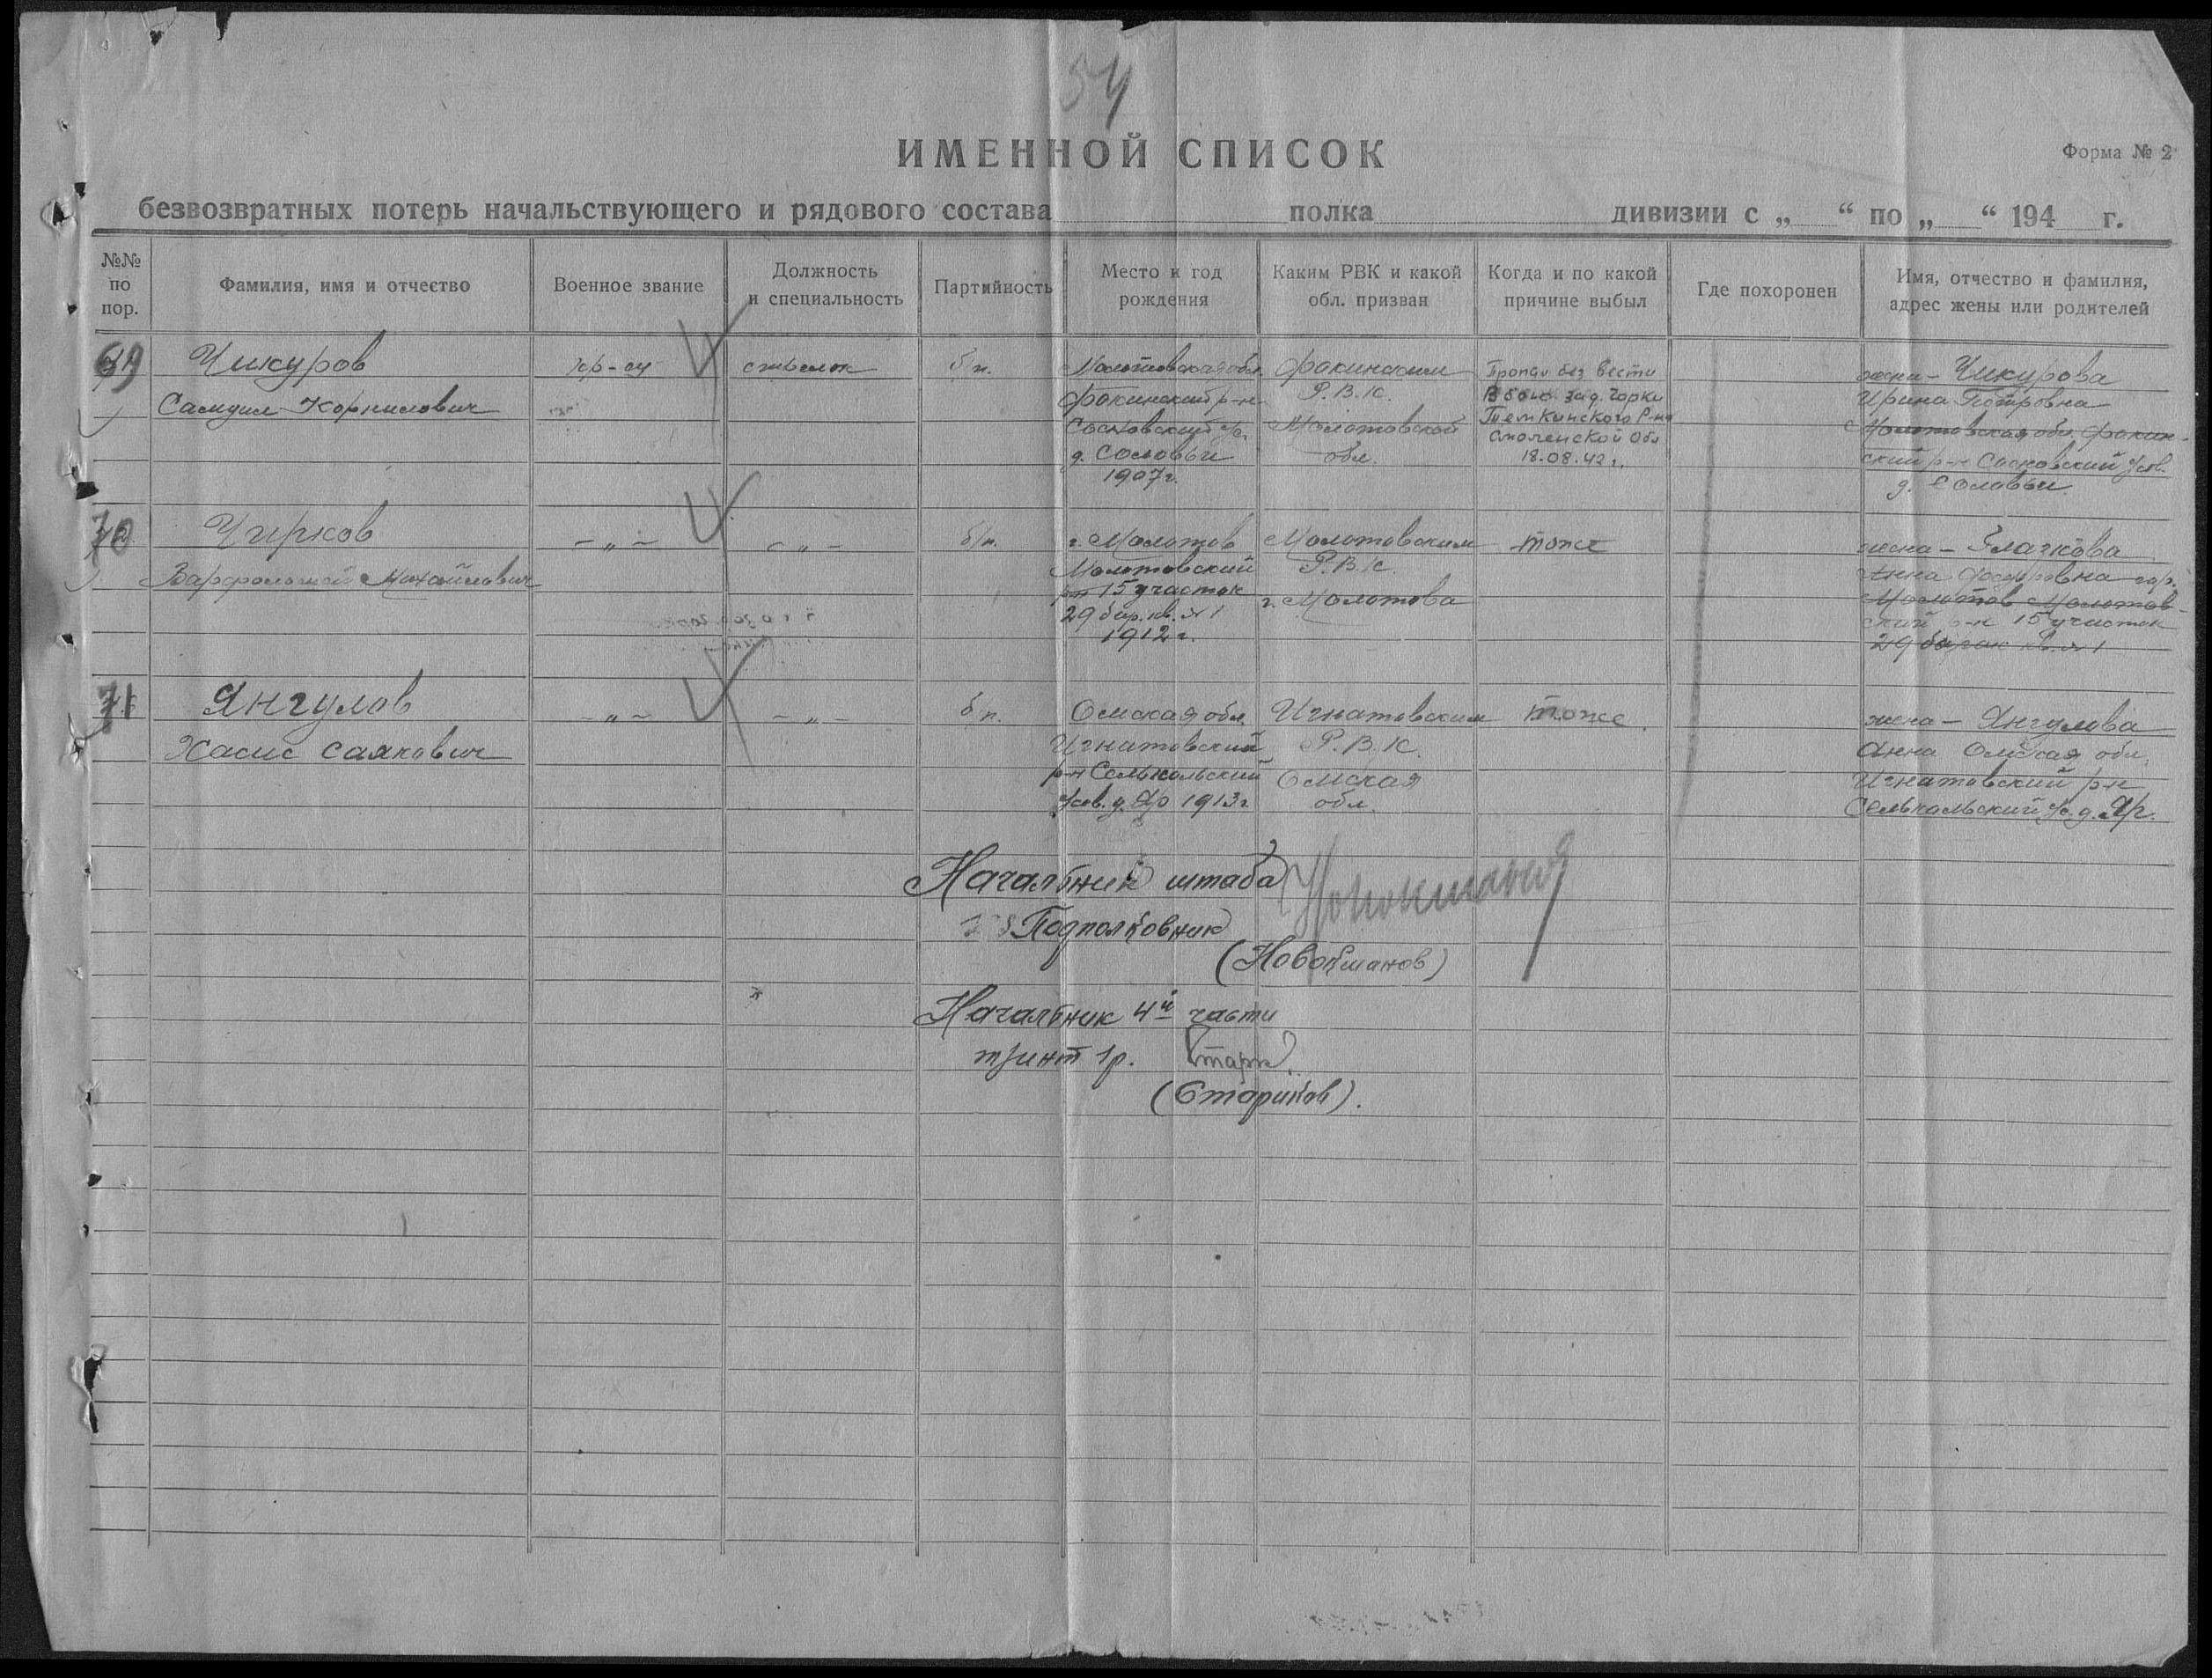 54
ИМЕННОЙ СПИСОК
Форма № 2
безвозвратных потерь начальствующего и рядового состава полка дивизии с „ “ по „ “ 194 г.
№№ по пор.
Фамилия, имя и отчество
Военное звание
Должность и специальность
Партийность
Место и год рождения
Каким РВК и какой обл. призван
Когда и по какой причине выбыл
Где похоронен
Имя, отчество и фамилия, адрес жены или родителей
69
Чикуров
Самуил Корнилович
кр-ец
стрелок
б/п.
Молотовская обл.
Фокинский р-н
Сосновский с/с
д. Соловьи
1907 г.
Фокинским
Р.В.К.
Молотовской
обл.
Пропал без вести
В бою за д. Горки
Темкинского Р-на
Смоленской Обл
18.08.42 г.
жена – Чикурова
Ирина Петровна
Молотовская обл. Фокин-
ский р-н Сосновский с/сов.
д. Соловьи
70
Чирков
Варфоломей Михайлович
– „ –
– „ –
б/п.
г. Молотов
Молотовский
р-н 15 участок
29 бар. кв. № 1
1912 г.
Молотовским
Р.В.К.
г. Молотова
тоже
жена –
Анна гор.
Молотов Молотов-
ский р-н 15 участок
29 барак кв. № 1
71
Янгулов
Хасис Саякович
– „ –
– „ –
б/п.
Омская обл.
Игнатовский
р-н
с/сов. д. Яр 1913 г
Игнатовским
Р.В.К.
Омская
обл.
тоже
жена – Янгулова
Анна Омская обл.
Игнатовский р-н
с/с. д. Яр.
Начальник штаба
Подполковник
(Новокшанов)
Начальник 4й части
т/инт 1р. Стари
(Стариков).